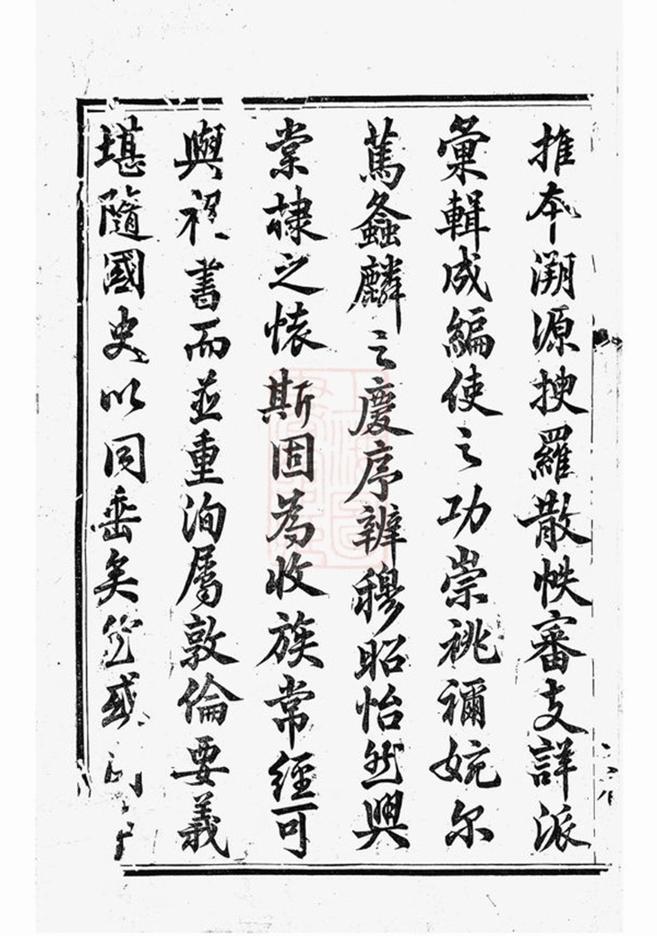 推本溯源搜羅散帙審支詳派
彙輯成編使之功崇祧禰婉尔
蔦螽麟之慶序辨穆昭怡然興
棠棣之懷斯固為收族常經可
與禮書而並重洵属敦倫要義
堪隨國史以同垂矣然或